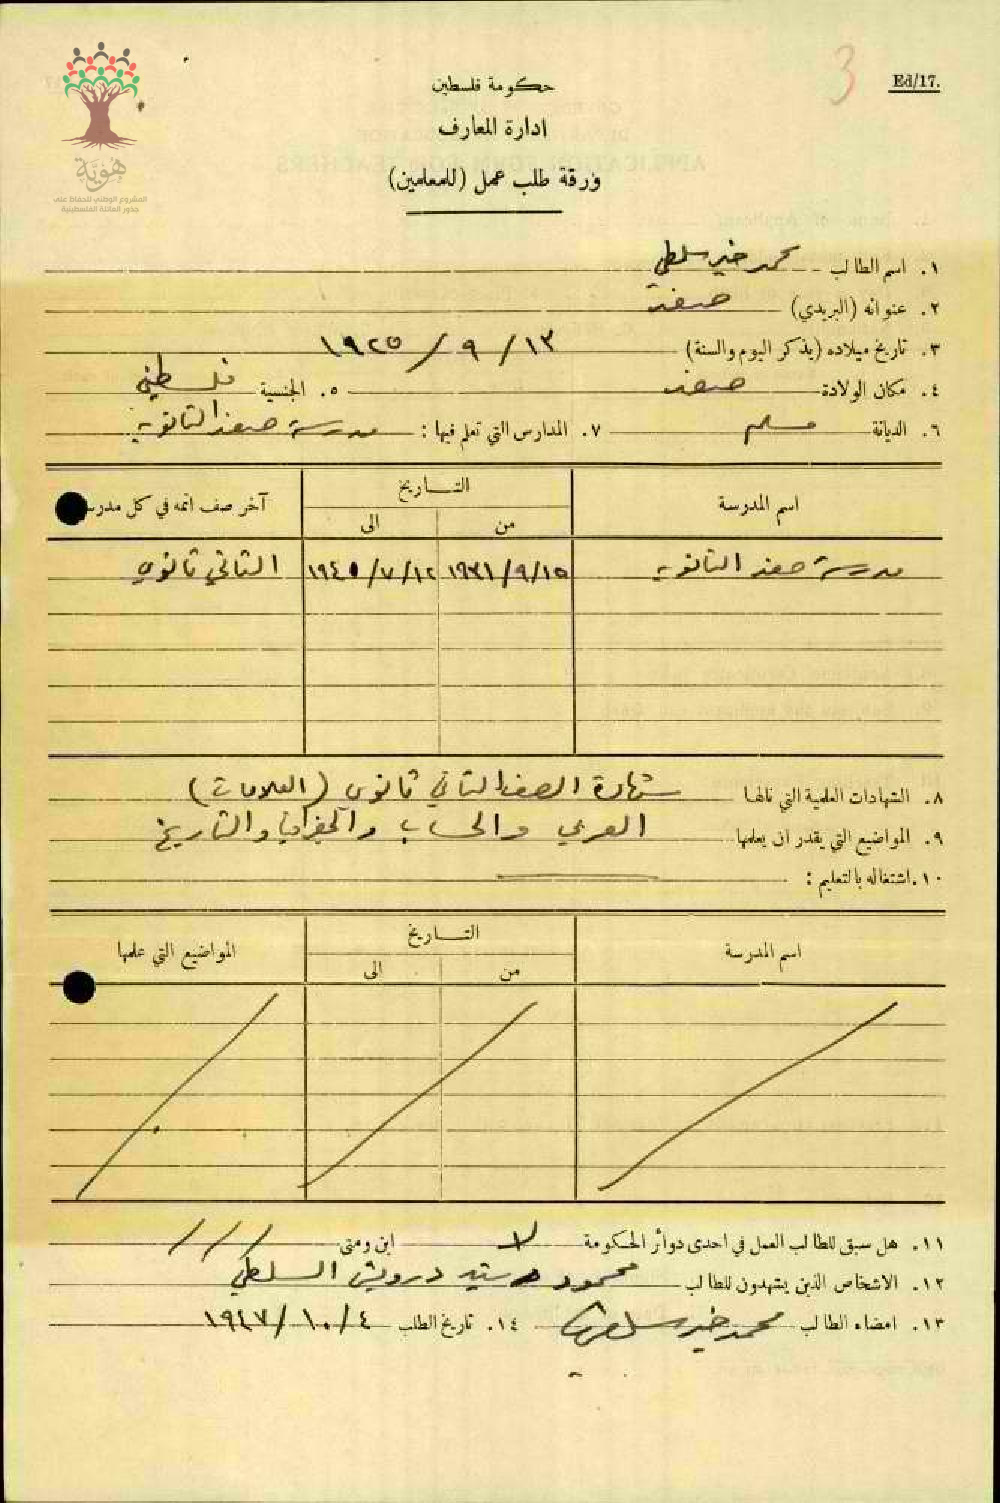 Ed/17.
3
حكومة فلسطين
ادارة المعارف
ورقة طلب عمل (للمعلمين)
هُويَّة
المشروع الوطني للحفاظ على
جذور العائلة الفلسطينية
١. اسم الطالب محمد خير سلطي
٢. عنوانه (البريدي) صفد
٣. تاريخ ميلاده (يذكر اليوم والسنة) ١٣ / ٩ / ١٩٢٥
٤. مكان الولادة صفد ٥. الجنسية فلسطيني
٦. الديانة مسلم ٧. المدارس التي تعلم فيها : مدرسة صفد الثانوية
اسم المدرسة التاريخ آخر صف اتمه في كل مدرسة
من الى
مدرسة صفد الثانوية ١٩٣١/٩/١٥ ١٩٤٥/٧/١٢ الثاني ثانوي
٨. الشهادات العلمية التي نالها شهادة الصف الثاني ثانوي (العلامات)
٩. المواضيع التي يقدر ان يعلمها العربي والحساب والجغرافيا والتاريخ
١٠. اشتغاله بالتعليم :
اسم المدرسة التاريخ المواضيع التي علمها
من الى
١١. هل سبق للطالب العمل في احدى دوائر الحكومة لا اين ومتى / / /
١٢. الاشخاص الذين يشهدون للطالب محمود درويش السلطي
١٣. امضاء الطالب محمد خير سلطي ١٤. تاريخ الطلب ٤/١٠/١٩٤٧